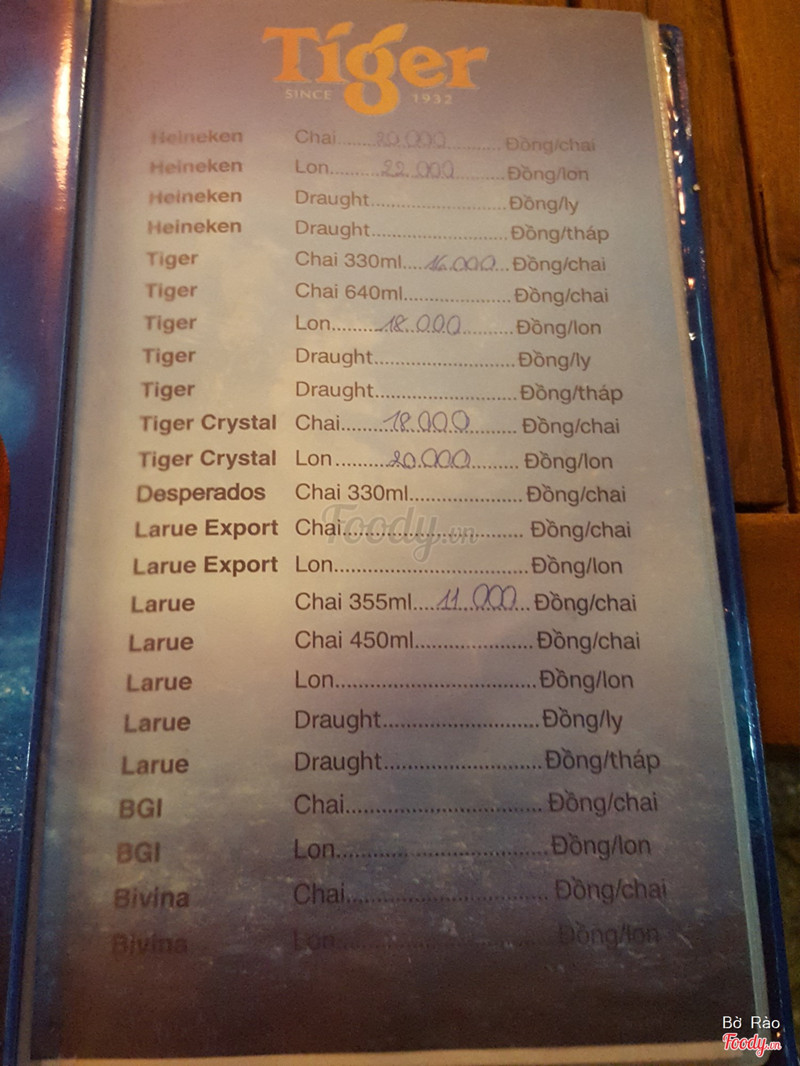 Tiger
SINCE 1932
Heineken Chai......20.000.........Đồng/chai
Heineken Lon.........22.000.........Đồng/lon
Heineken Draught.........................Đồng/ly
Heineken Draught.........................Đồng/tháp
Tiger Chai 330ml....16.000...Đồng/chai
Tiger Chai 640ml....................Đồng/chai
Tiger Lon.........18.000.........Đồng/lon
Tiger Draught.........................Đồng/ly
Tiger Draught.........................Đồng/tháp
Tiger Crystal Chai.......18.000........Đồng/chai
Tiger Crystal Lon.........20.000........Đồng/lon
Desperados Chai 330ml....................Đồng/chai
Foody.vn
Larue Export Chai................................Đồng/chai
Larue Export Lon.................................Đồng/lon
Larue Chai 355ml....11.000...Đồng/chai
Larue Chai 450ml....................Đồng/chai
Larue Lon..................................Đồng/lon
Larue Draught..........................Đồng/ly
Larue Draught..........................Đồng/tháp
BGI Chai................................Đồng/chai
BGI Lon..................................Đồng/lon
Bivina Chai................................Đồng/chai
Bivina Lon..................................Đồng/lon
Bờ Rào
Foody.vn